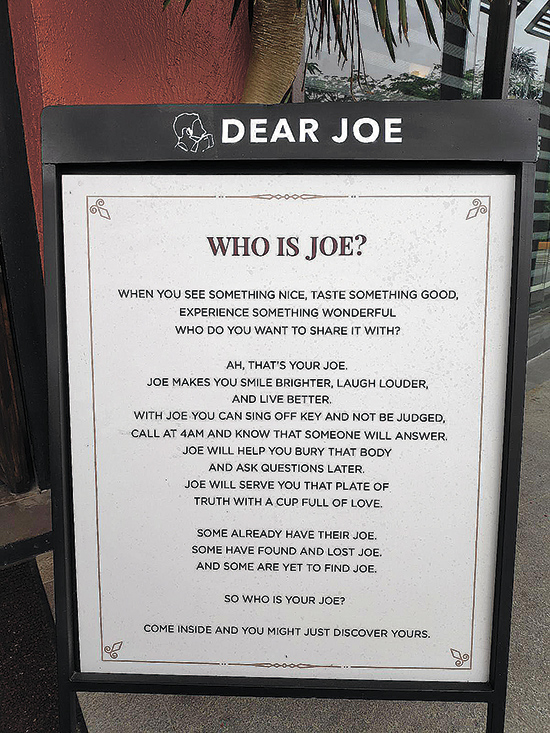 DEAR JOE
WHO IS JOE?
WHEN YOU SEE SOMETHING NICE, TASTE SOMETHING GOOD,
EXPERIENCE SOMETHING WONDERFUL
WHO DO YOU WANT TO SHARE IT WITH?
AH, THAT'S YOUR JOE.
JOE MAKES YOU SMILE BRIGHTER, LAUGH LOUDER,
AND LIVE BETTER.
WITH JOE YOU CAN SING OFF KEY AND NOT BE JUDGED,
CALL AT 4AM AND KNOW THAT SOMEONE WILL ANSWER.
JOE WILL HELP YOU BURY THAT BODY
AND ASK QUESTIONS LATER.
JOE WILL SERVE YOU THAT PLATE OF
TRUTH WITH A CUP FULL OF LOVE.
SOME ALREADY HAVE THEIR JOE.
SOME HAVE FOUND AND LOST JOE.
AND SOME ARE YET TO FIND JOE.
SO WHO IS YOUR JOE?
COME INSIDE AND YOU MIGHT JUST DISCOVER YOURS.